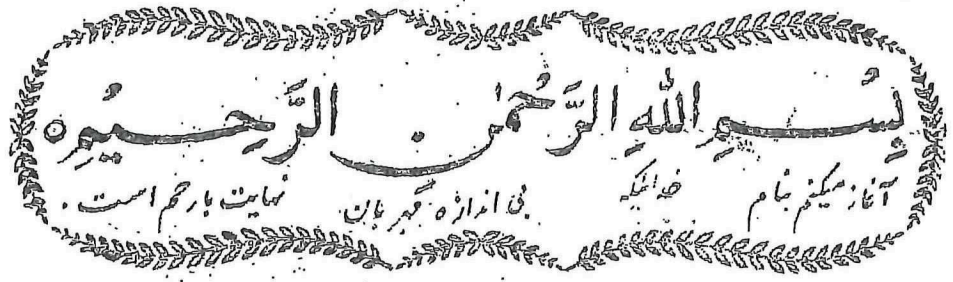 بِسْمِ اللّٰهِ الرَّحْمٰنِ الرَّحِيْمِ ه
آغاز میکنم بنام خدائیکه بی اندازه مهربان. نهایت بارحم است.